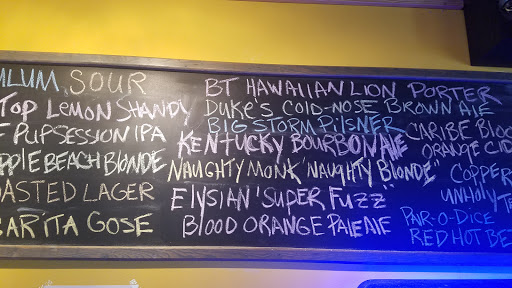 SOUR
TOP LEMON SHANDY
PUPSESSION IPA
BEACH BLONDE
LAGER
GOSE
BT HAWAIIAN LION PORTER
DUKE'S COLD-NOSE BROWN ALE
BIG STORM PILSNER
KENTUCKY BOURBON ALE
NAUGHTY MONK 'NAUGHTY BLONDE"
ELYSIAN 'SUPER FUZZ"
BLOOD ORANGE PALE ALE
CARIBE
ORANGE
COPPER
UNHOLY
PAR-O-DICE
RED HOT